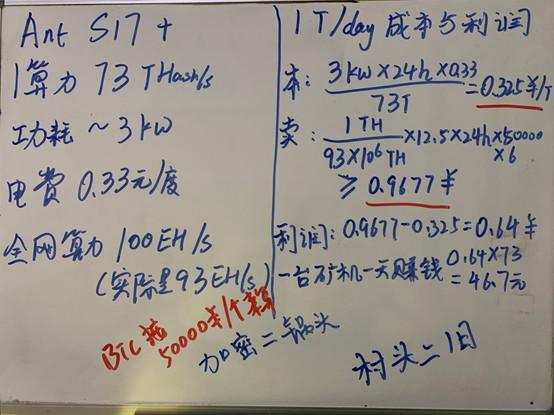 Ant S17+
算力 73 THash/s
功耗 ~3kW
电费 0.33元/度
全网算力 100EH/s
(实际是93EH/s)
BTC按
50000¥/个算
加密二锅头
1T/day 成本与利润
本: 3kW×24h×0.33
73T
=0.325¥/T
卖: 1TH
93×10⁶TH
×12.5×24h×50000
×6
≥ 0.9677¥
利润: 0.9677-0.325=0.64¥
一台矿机一天赚钱 0.64×73
=46.7元
村头二旧